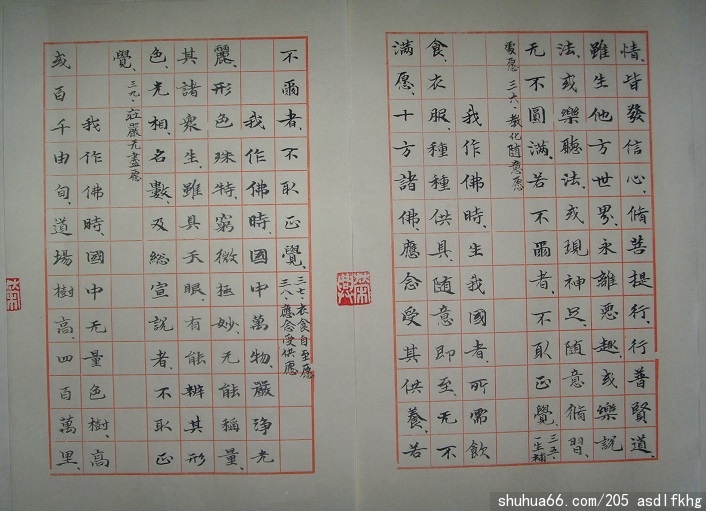 情、皆發信心、脩菩提行、行普賢道、
雖生他方世界、永離惡趣、或樂說
法、或樂聽法、或現神足、隨意脩習、
无不圓滿、若不爾者、不取正覺、三五、一生補
處愿 三六、教化随意愿
我作佛時、生我國者、所需飲
食、衣服、種種供具、隨意即至、无不
滿愿、十方諸佛、應念受其供養、若
不爾者、不取正覺、三七、衣食自至愿
三八、應念受供愿
我作佛時、國中萬物、嚴淨光
麗、形色殊特、窮微極妙、无能稱量、
其諸衆生、雖具天眼、有能辨其形
色、光相、名數、及総宣說者、不取正
覺、三九、莊嚴无盡愿
我作佛時、國中无量色樹、高
或百千由旬、道場樹高、四百萬里、
shuhua66.com/205 asdlfkhg